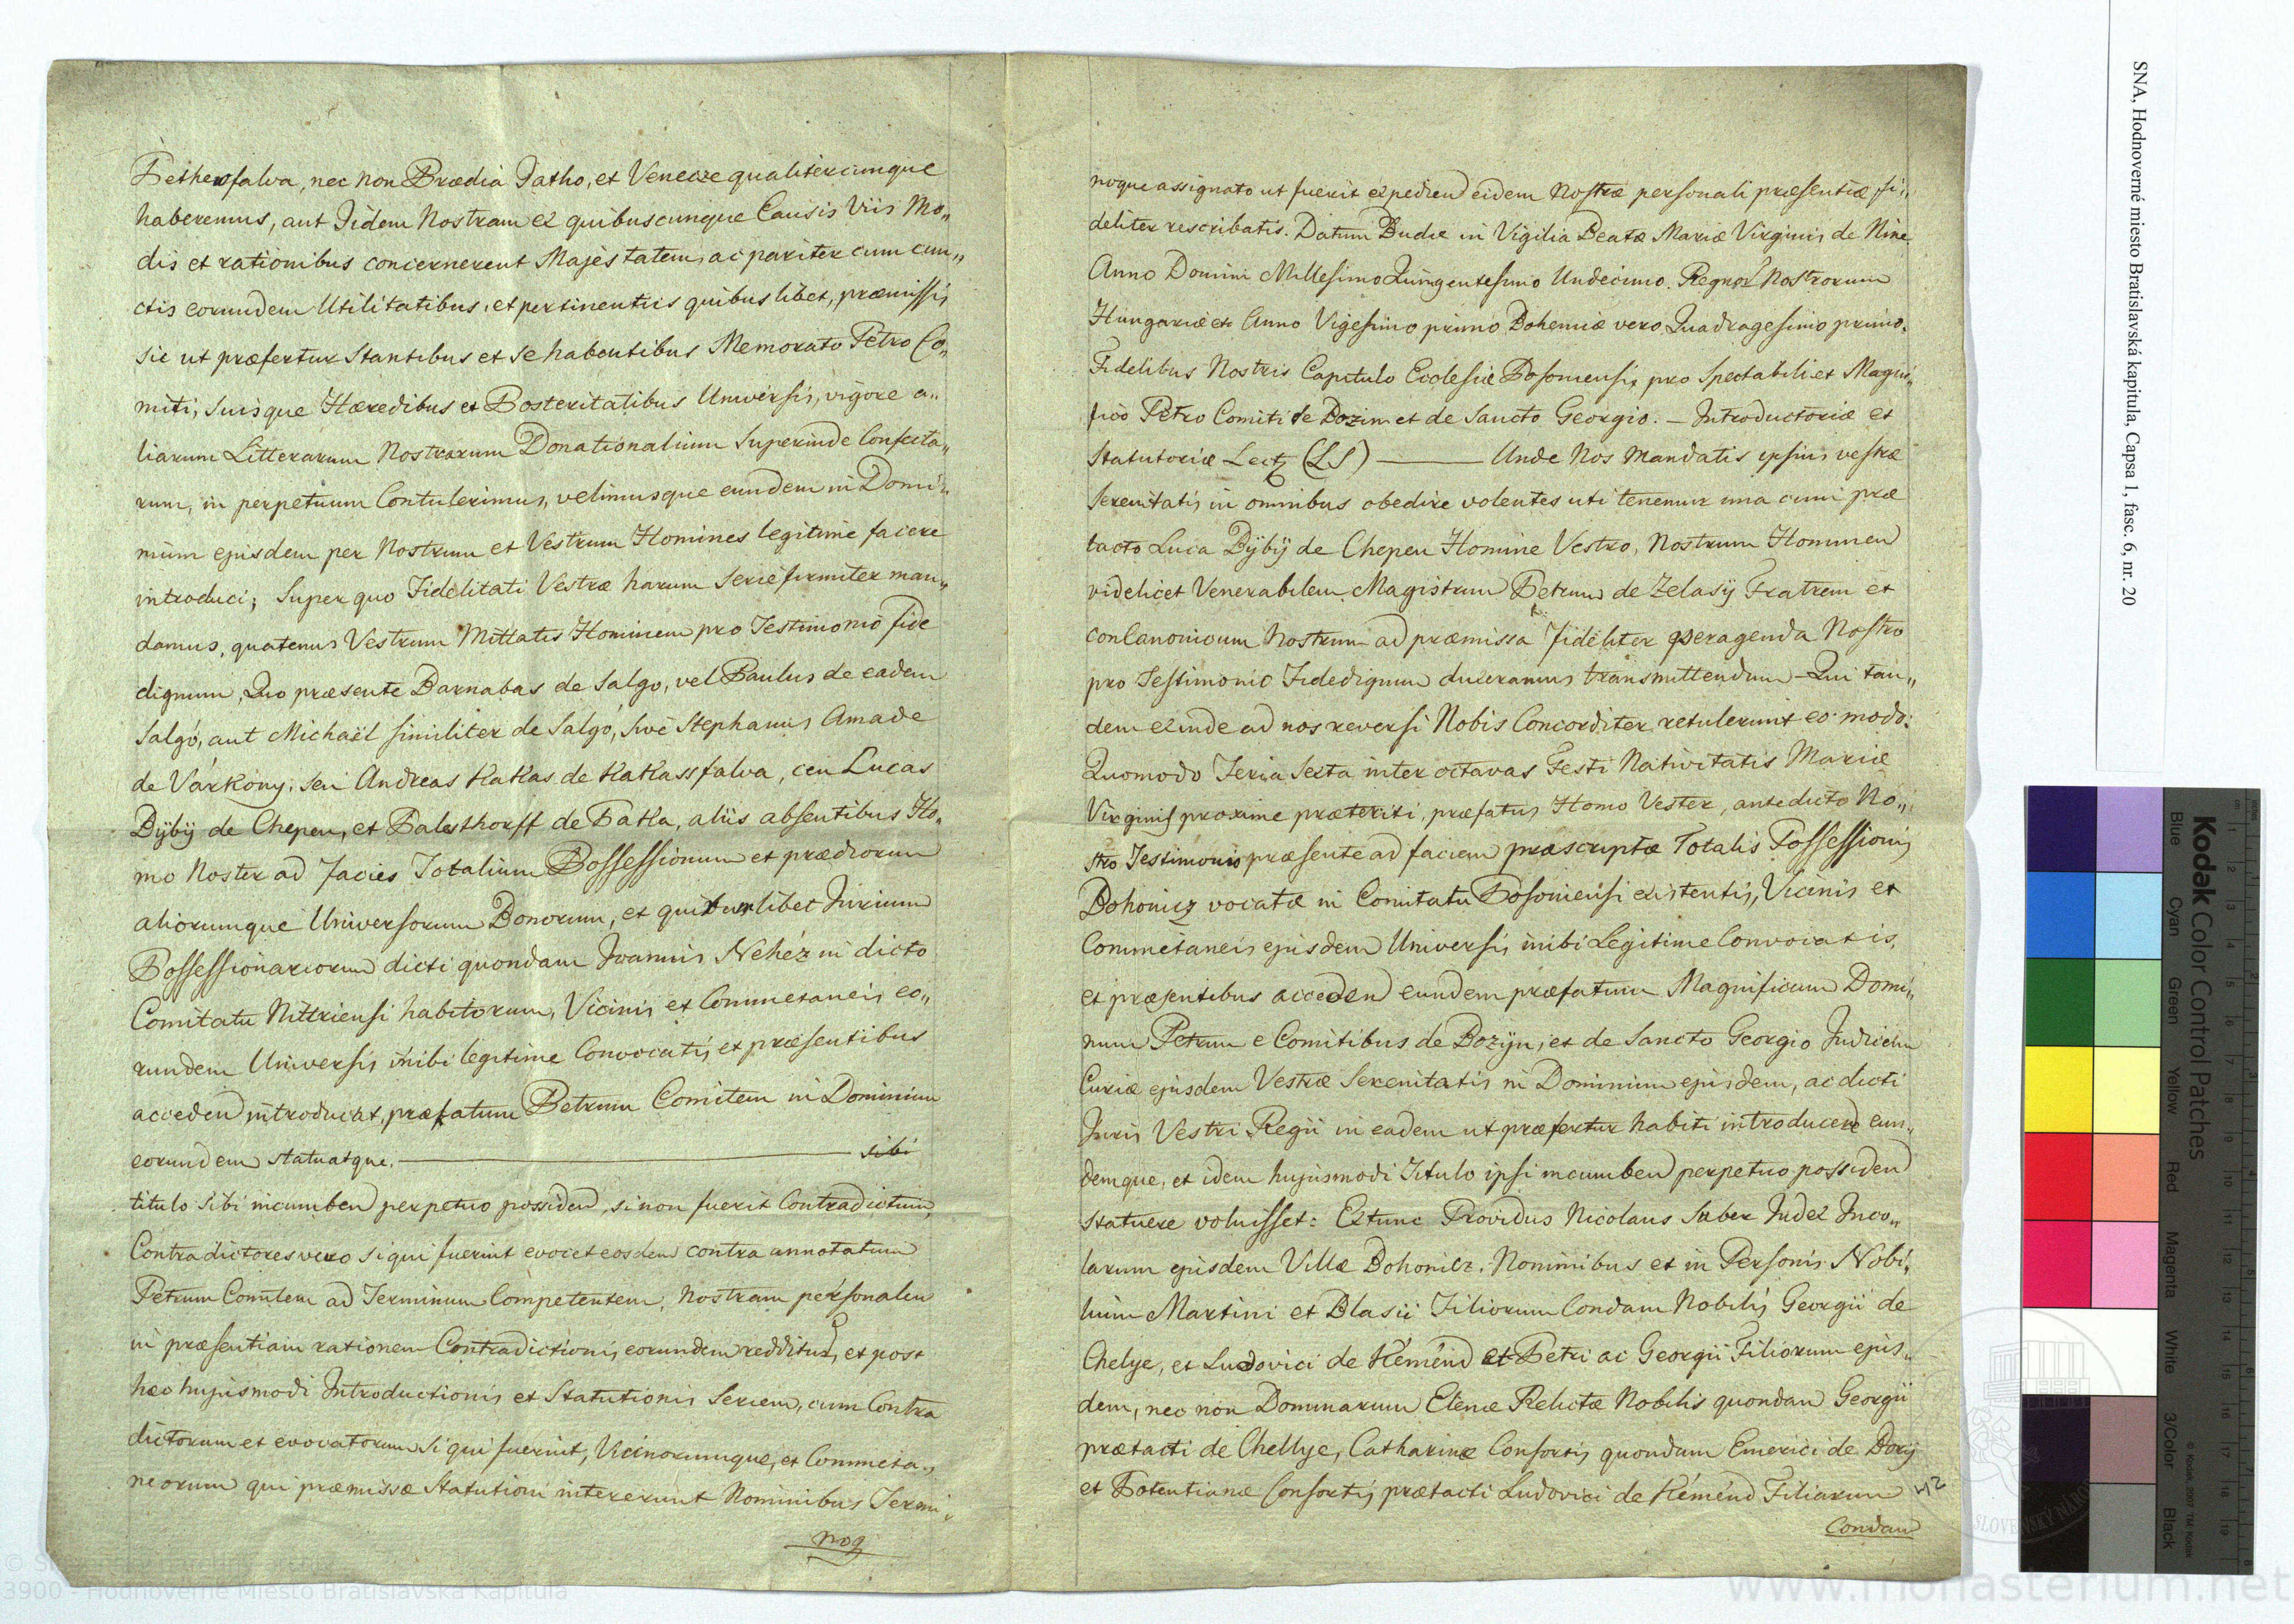 Petherfalva, nec non Prædia Jatho, et Venecze qualitercunque
haberemus, aut Iidem Nostram ex quibuscunque Causis Viis Mo„
dis et rationibus concernerent Majestatem, ac pariter cum cun„
ctis eorundem Utilitatibus, et pertinentiis quibuslibet, præmissis
sic ut præfertur Stantibus et se habentibus Memorato Petro Co„
miti, Suisque Hæredibus et Posteritatibus Universis, vigore a„
liarum Litterarum Nostrarum Donationalium Superinde Confecta„
rum, in perpetuum Contulerimus, velimusque eundem in Domi„
nium ejusdem per Nostrum et Vestrum Homines legitime facere
introduci; Super quo Fidelitati Vestræ harum Serie firmiter man„
damus, quatenus Vestrum Mittatis Hominem pro Testimonio fide
dignum, Quo præsente Barnabas de Salgo, vel Paulus de eadem
Salgó, aut Michaël similiter de Salgó, Sive Stephanus Amade
de Várkony, seu Andreas Katkas de Katkassfalva, ceu Lucas
Dÿbÿ de Chepen, et Balesthorff de Patka, aliis absentibus Ho„
mo Noster ad facies Totalium Possessionum et prædiorum
aliorumque Universorum Bonorum, et quorumlibet Jurium
Possessionariorum dicti quondam Joannis Nehéz in dicto
Comitatu Nittriensi habitorum, Vicinis et Commetaneis eo„
rundem Universis inibi legitime Convocatis, et præsentibus
acceden introducat, præfatum Petrum Comitem in Dominium
eorundem statuatque. ——— sibi
titulo sibi incumben perpetuo possiden, si non fuerit Contradictum,
Contradictores vero si qui fuerint evocet eosdem contra annotatum
Petrum Comitem ad Terminum Competentem, Nostram personalem
in præsentiam rationem Contradictionis eorundem redditur, et post
hæc hujusmodi Introductionis et Statutionis Seriem, cum Contra
dictorum et evocatorum Si qui fuerint, Vicinorumque, et Commeta„
neorum qui præmissæ Statutioni intererunt Nominibus Termi„
noq
noque assignato ut fuerit expedien eidem Nostræ personali præsentiæ fi„
deliter rescribatis. Datum Budæ in Vigilia Beatæ Mariæ Virginis de Nive
Anno Domini Millesimo Quingentesimo Undecimo. Regnor Nostrorum
Hungariæ etc Anno Vigesimo primo Bohemiæ vero Quadragesimo primo.
Fidelibus Nostris Capitulo Ecclesiæ Posoniensis, pro Spectabili et Magni„
fico Petro Comiti de Bozin et de Sancto Georgio. — Introductoriæ et
Statutoriæ Lectæ (LS) ——— Unde Nos Mandatis ipsius vestræ
Serenitatis in omnibus obedire volentes uti tenemur una cum præ
tacto Luca Dÿbÿ de Chepen Homine Vestro, Nostrum Hominem
videlicet Venerabilem Magistrum Petrum de Zelasÿ Fratrem et
conCanonicum Nostrum ad præmissa fideliter peragenda Nostro
pro Testimonio Fidedignum duxeramus transmittendum – Qui tan„
dem exinde ad nos reversi Nobis Concorditer retulerunt eo modo:
Quomodo Feria Sexta inter octavas Festi Nativitatis Mariæ
Virginis proxime præteriti, præfatus Homo Vester, antedicto No„
stro Testimonio præsente ad faciem præscriptæ Totalis Possessionis
Bohonicz vocatæ in Comitatu Posoniensi existentis, Vicinis et
Commetaneis ejusdem Universis inibi Legitime Convocatis,
et præsentibus acceden eundem præfatum Magnificum Domi„
num Petrum e Comitibus de Bozÿn, et de Sancto Georgio Judicem
Curiæ ejusdem Vestræ Serenitatis in Dominium ejusdem, ac dicti
Juris Vestri Regii in eadem ut præfertur habiti introducere eun„
demque, et idem hujusmodi Titulo ipsi incumben perpetuo possiden
Statuere voluisset: Extunc Providus Nicolaus Suber Judex Inco„
larum ejusdem Villæ Bohonicz, Nominibus et in Personis Nobi„
lium Martini et Blasii Filiorum Condam Nobilis Georgii de
Chelye, et Ludovici de Keménd et Petri ac Georgii Filiorum ejus„
dem, nec non Dominarum Elenæ Relictæ Nobilis quondam Georgii
prætacti de Chellye, Catharinæ Consortis quondam Emerici de Dorÿ
et Potentianæ Consortis prætacti Ludovici de Keménd Filiarum
Condam
42
SNA, Hodnoverné miesto Bratislavská kapitula, Capsa 1, fasc. 6, nr. 20
Kodak Color Control Patches
Blue Cyan Green Yellow Red Magenta White 3/Color Black
© Kodak, 2007 TM: Kodak
3900 - Hodnoverné Miesto Bratislavská Kapitula
www.monasterium.net